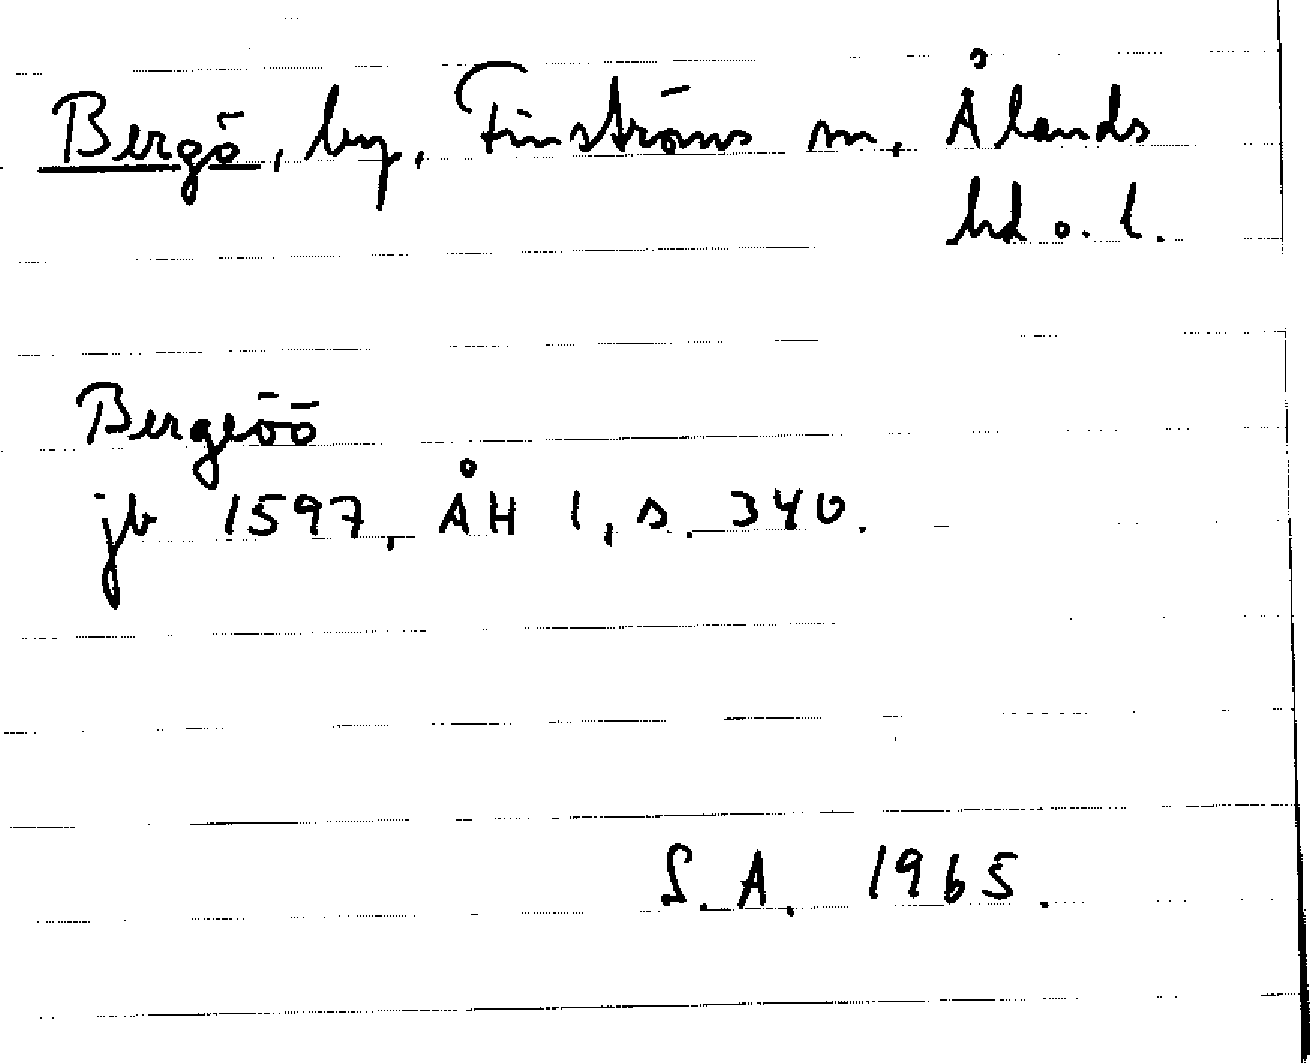 Bergö, by, Finströms sn, Ålands
hd o. l.
Bergeöö
jb 1597, ÅH 1, s. 340.
S.A. 1965.